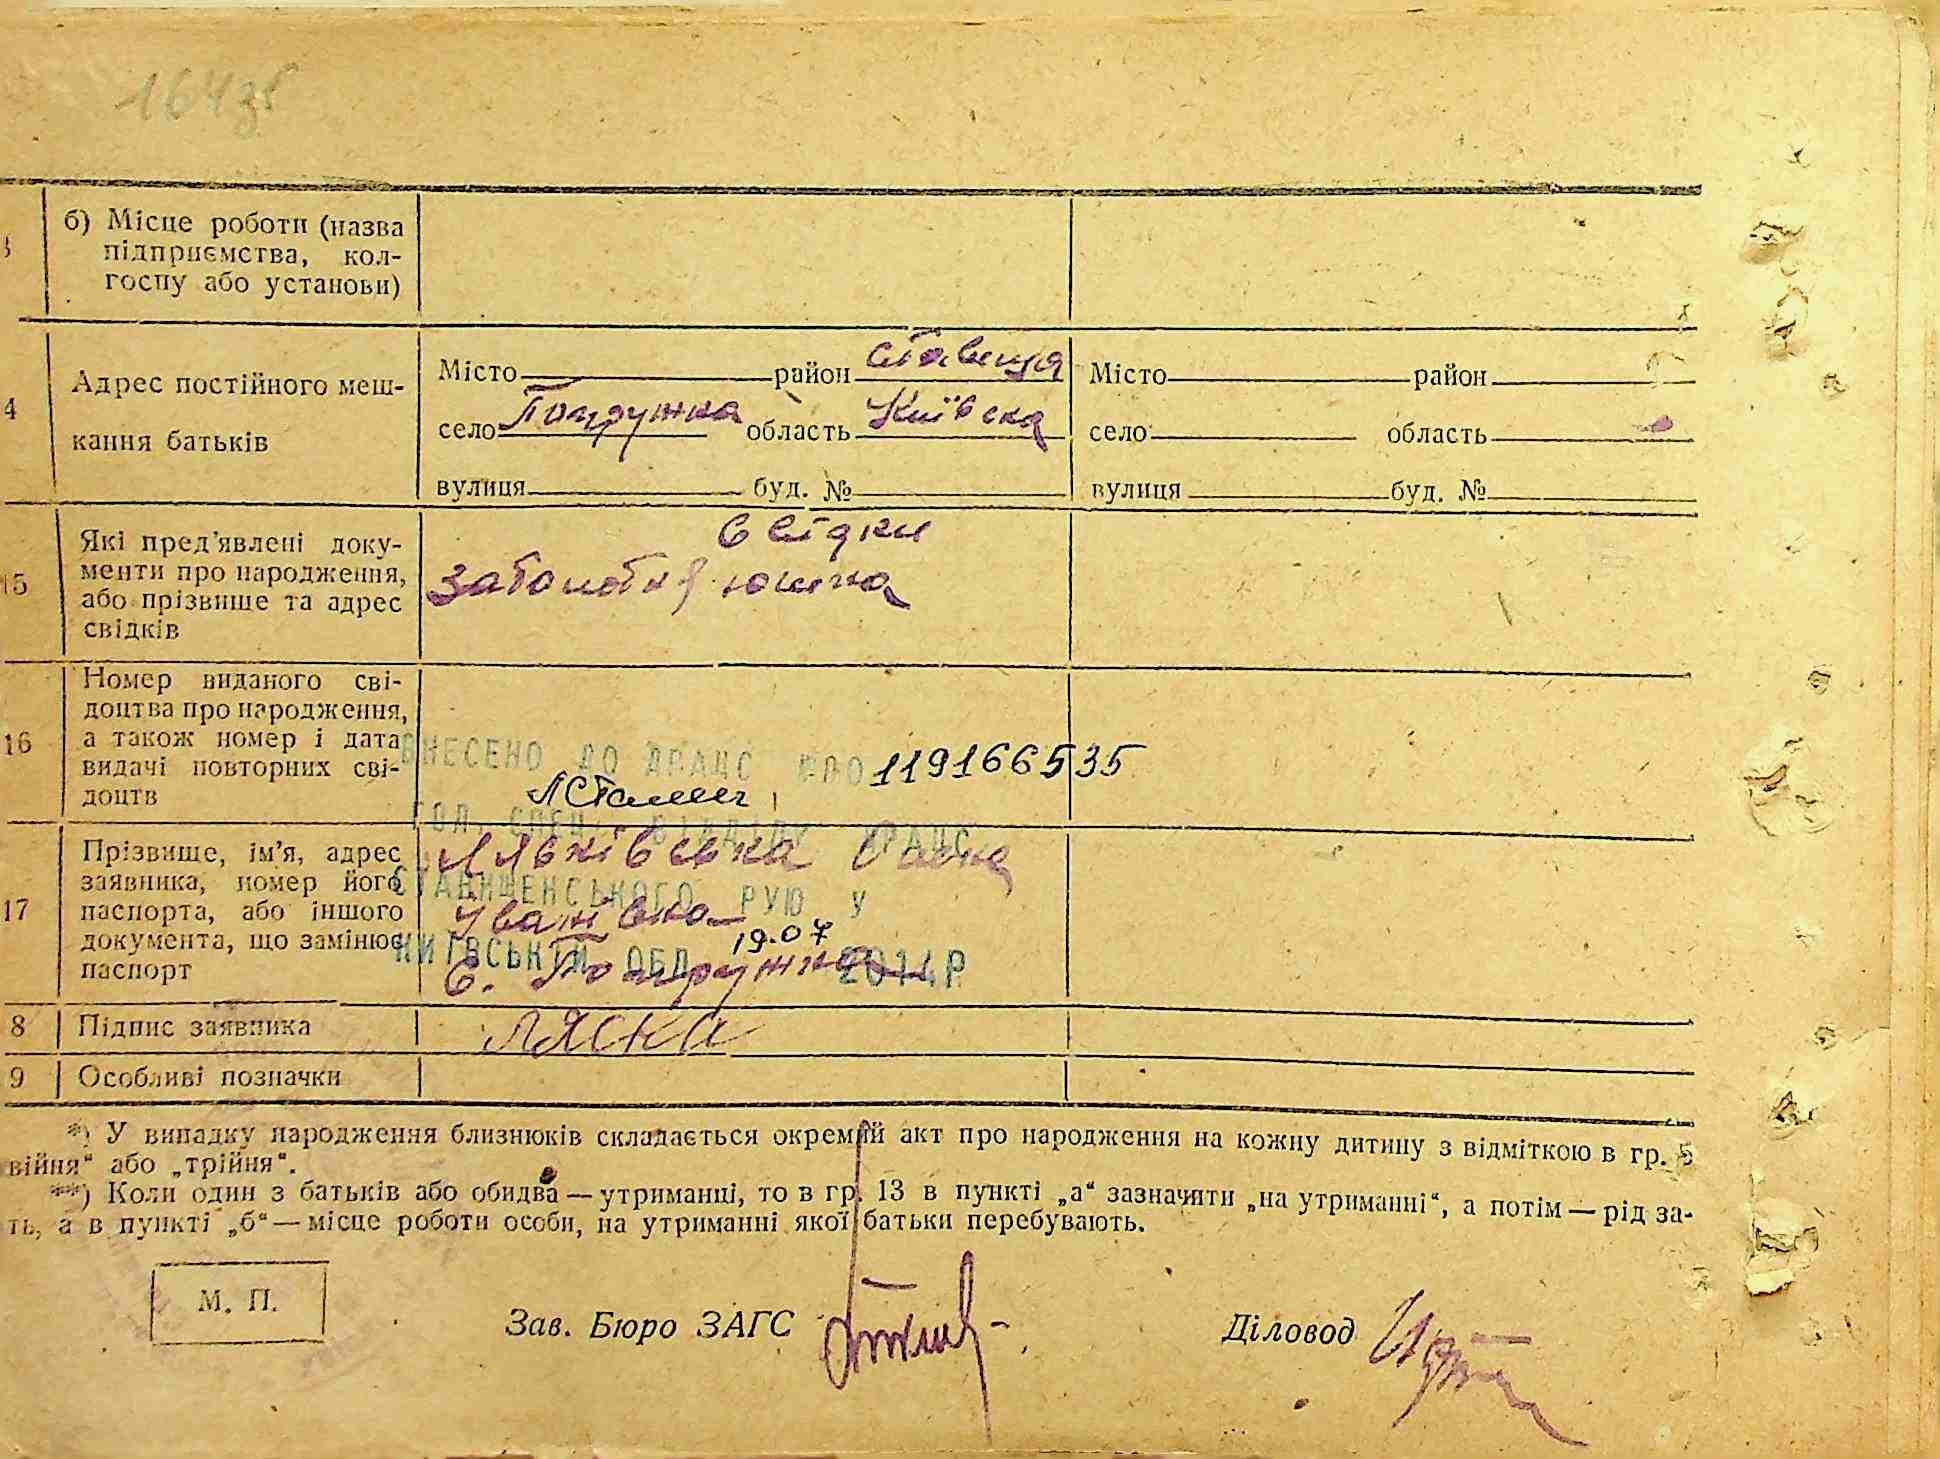 164 зв
б) Місце роботи (назва
підприємства, кол-
госпу або установи)
4
Адрес постійного меш-
кання батьків
Місто район Ставища
село Попружна область Київська
вулиця буд. №
Місто район
село область
вулиця буд. №
15
Які пред'явлені доку-
менти про народження,
або прізвище та адрес
свідків
свідки
Заболотня
16
Номер виданого сві-
доцтва про народження,
а також номер і дата
видачі повторних сві-
доцтв
ВНЕСЕНО ДО ДРАЦС 119166535
ГОЛ.СПЕЦ. ВІДДІЛУ ДРАЦС
СТАВИЩЕНСЬКОГО РУЮ У
КИЇВСЬКІЙ ОБЛ. 19.07 2014Р
17
Прізвище, ім'я, адрес
заявника, номер його
паспорта, або іншого
документа, що замінює
паспорт
Іванівна
с. Попружна
8
Підпис заявника
9
Особливі позначки
*) У випадку народження близнюків складається окремий акт про народження на кожну дитину з відміткою в гр. 5
війня“ або „трійня“.
**) Коли один з батьків або обидва — утриманці, то в гр. 13 в пункті „а“ зазначити „на утриманні“, а потім — рід за-
ть, а в пункті „б“ — місце роботи особи, на утриманні якої батьки перебувають.
М. П.
Зав. Бюро ЗАГС
Діловод